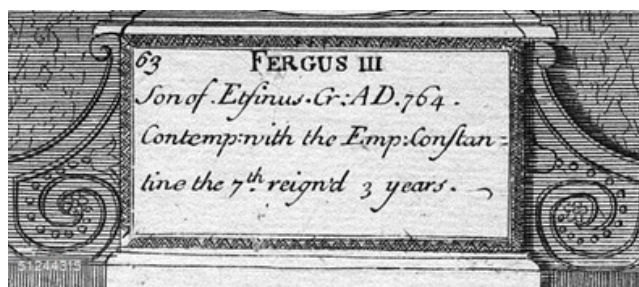 63 FERGUS III
Son of. Etfinus. Cr: A D. 764.
Contemp: with the Emp: Constan=
tine the 7th. reign'd 3 years.
51244315